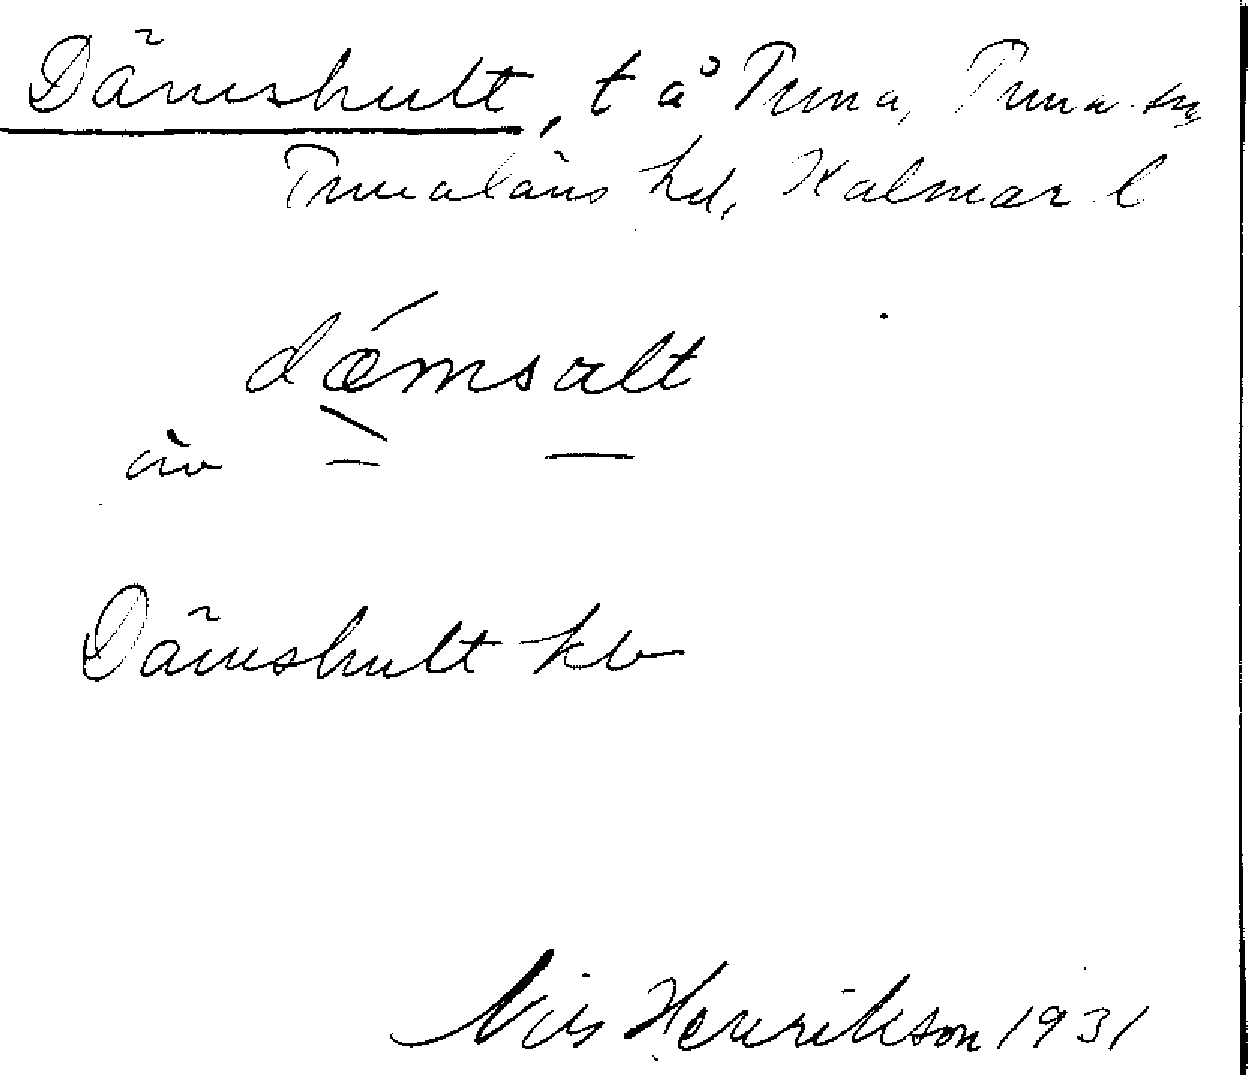 Dämshult, t å Tuna, Tuna sn
Tunaläns hd, Kalmar l
dǽmsalt
äv
Dämshult kb
Nils Henrikson 1931